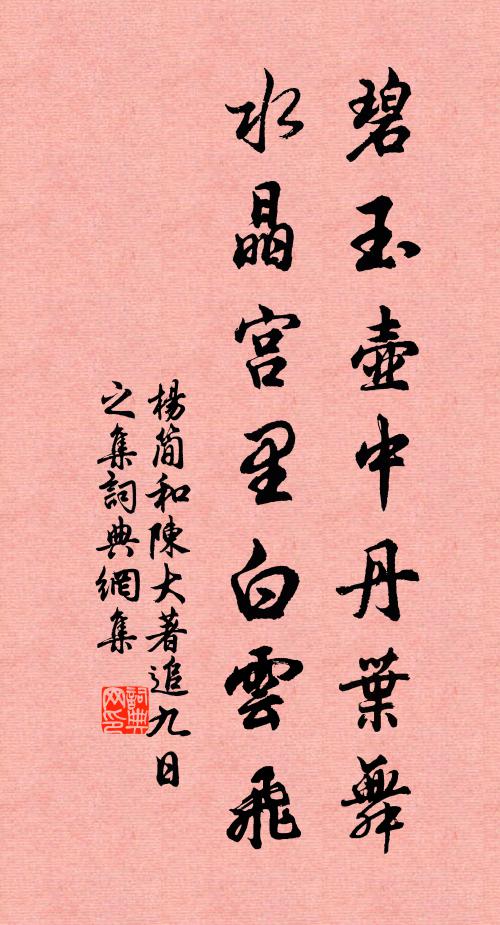 碧玉壺中丹葉舞
水晶宮里白雲飛
楊簡和陳大著追九日
之集詞典網集
詞典
网印